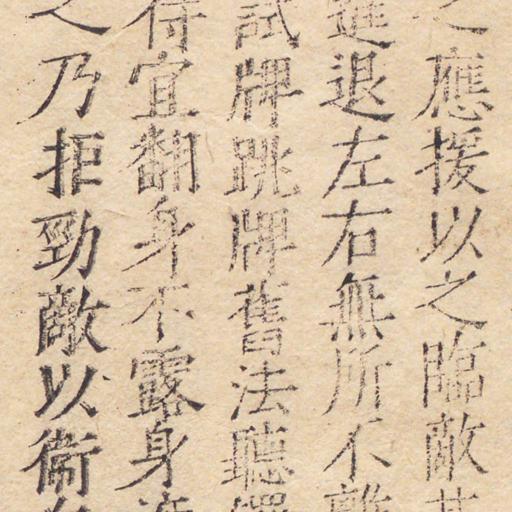 之應援以之臨敵其
進退左右無所不離
試牌跳牌舊法聽擇
得宜翻身不露身
之乃拒勁敵以衞